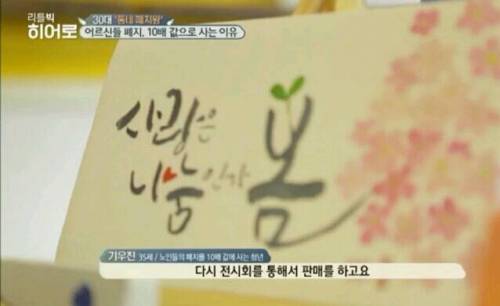 리틀빅
히어로
30대 '동네
어르신들 폐지, 10배 값으로 사는 이유
사랑은
나눔인가 봄
기우진 35세 / 노인들의 폐지를 10배 값에 사는 청년
다시 전시회를 통해서 판매를 하고요